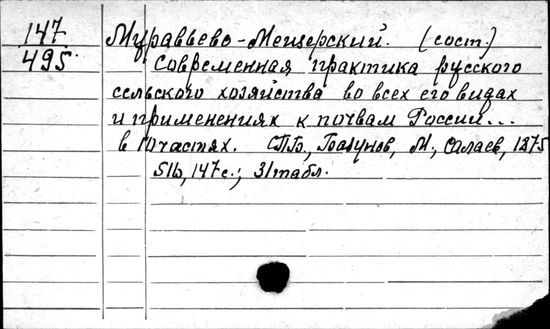 147
495.
Муравьево-Мещерский. (сост.)
Современная практика русского
сельского хозяйства во всех его видах
и применениях к почвам России...
в 10 частях. СПБ., Базунов, М., Салаев, 1875
516, 147 с.; 31 табл.